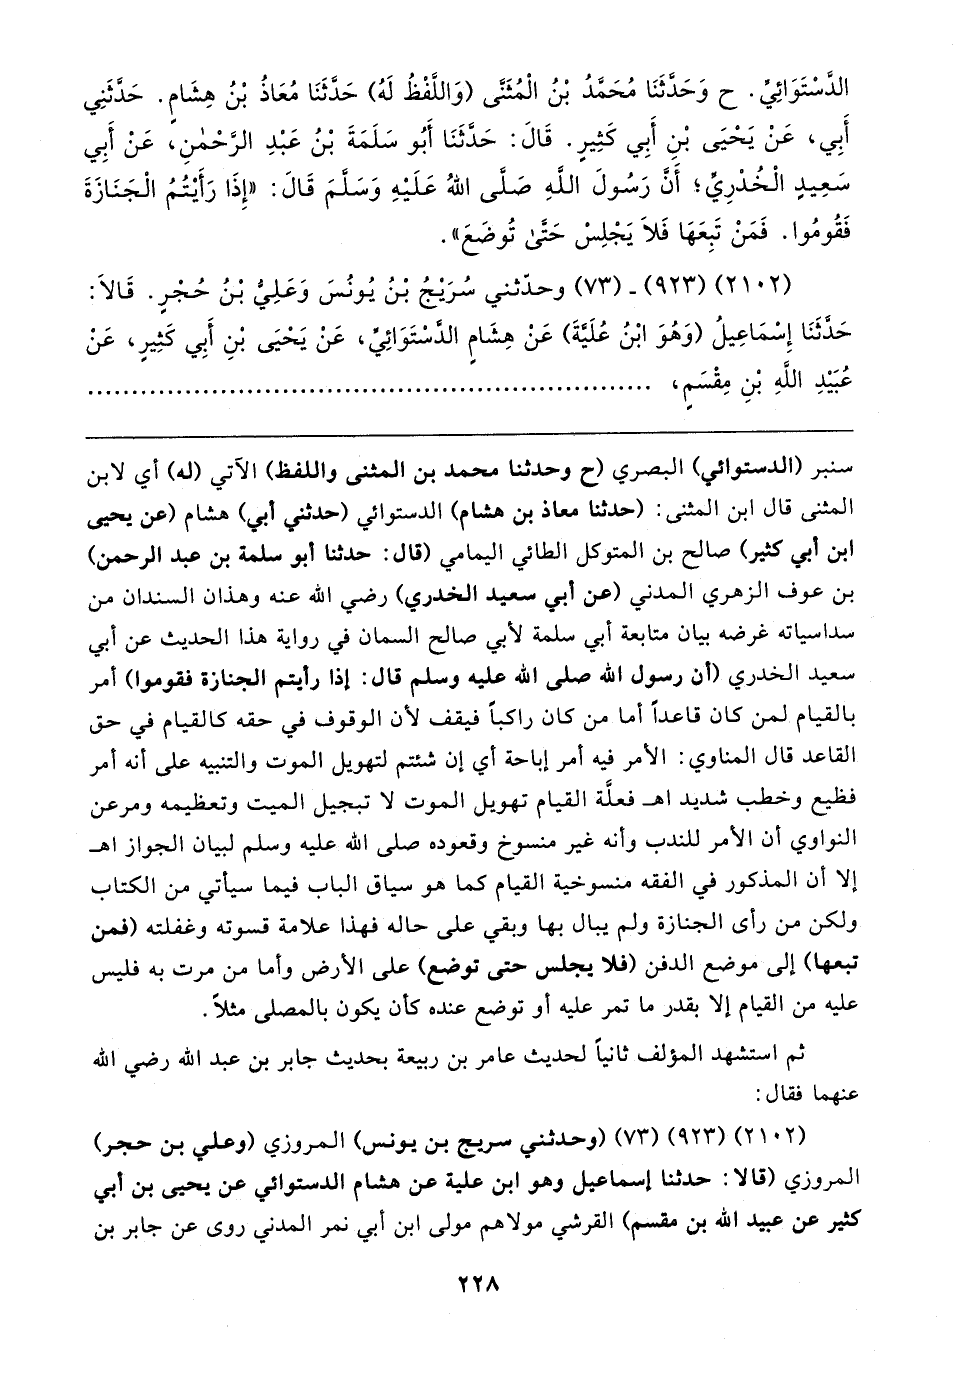 الدَّسْتَوَائِيِّ. ح وَحَدَّثَنَا مُحَمَّدُ بْنُ الْمُثَنَّى (وَاللَّفْظُ لَهُ) حَدَّثَنَا مُعَاذُ بْنُ هِشَامٍ. حَدَّثَنِي
أَبِي، عَنْ يَحْيَى بْنِ أَبِي كَثِيرٍ. قَالَ: حَدَّثَنَا أَبُو سَلَمَةَ بْنُ عَبْدِ الرَّحْمٰنِ، عَنْ أَبِي
سَعِيدٍ الْخُدْرِيِّ؛ أَنَّ رَسُولَ اللَّهِ صَلَّى اللهُ عَلَيْهِ وَسَلَّمَ قَالَ: «إِذَا رَأَيْتُمُ الْجَنَازَةَ
فَقُومُوا. فَمَنْ تَبِعَهَا فَلاَ يَجْلِسْ حَتَّىٰ تُوضَعَ».
(٢١٠٢) (٩٢٣) - (٧٣) وحدّثني سُرَيْجُ بْنُ يُونُسَ وَعَلِيُّ بْنُ حُجْرٍ. قَالاَ:
حَدَّثَنَا إِسْمَاعِيلُ (وَهُوَ ابْنُ عُلَيَّةَ) عَنْ هِشَامٍ الدَّسْتَوَائِيِّ، عَنْ يَحْيَى بْنِ أَبِي كَثِيرٍ، عَنْ
عُبَيْدِ اللَّهِ بْنِ مِقْسَمٍ، ................................................................
سنبر (الدستوائي) البصري (ح وحدثنا محمد بن المثنى واللفظ) الآتي (له) أي لابن
المثنى قال ابن المثنى: (حدثنا معاذ بن هشام) الدستوائي (حدثني أبي) هشام (عن يحيى
ابن أبي كثير) صالح بن المتوكل الطائي اليمامي (قال: حدثنا أبو سلمة بن عبد الرحمن)
بن عوف الزهري المدني (عن أبي سعيد الخدري) رضي الله عنه وهذان السندان من
سداسياته غرضه بيان متابعة أبي سلمة لأبي صالح السمان في رواية هذا الحديث عن أبي
سعيد الخدري (أن رسول الله صلى الله عليه وسلم قال: إذا رأيتم الجنازة فقوموا) أمر
بالقيام لمن كان قاعداً أما من كان راكباً فيقف لأن الوقوف في حقه كالقيام في حق
القاعد قال المناوي: الأمر فيه أمر إباحة أي إن شئتم لتهويل الموت والتنبيه على أنه أمر
فظيع وخطب شديد اهـ فعلَّة القيام تهويل الموت لا تبجيل الميت وتعظيمه ومرعن
النواوي أن الأمر للندب وأنه غير منسوخ وقعوده صلى الله عليه وسلم لبيان الجواز اهـ
إلا أن المذكور في الفقه منسوخية القيام كما هو سياق الباب فيما سيأتي من الكتاب
ولكن من رأى الجنازة ولم يبال بها وبقي على حاله فهذا علامة قسوته وغفلته (فمن
تبعها) إلى موضع الدفن (فلا يجلس حتى توضع) على الأرض وأما من مرت به فليس
عليه من القيام إلا بقدر ما تمر عليه أو توضع عنده كأن يكون بالمصلى مثلاً.
ثم استشهد المؤلف ثانياً لحديث عامر بن ربيعة بحديث جابر بن عبد الله رضي الله
عنهما فقال:
(٢١٠٢) (٩٢٣) (٧٣) (وحدثني سريج بن يونس) المروزي (وعلي بن حجر)
المروزي (قالا: حدثنا إسماعيل وهو ابن علية عن هشام الدستوائي عن يحيى بن أبي
كثير عن عبيد الله بن مقسم) القرشي مولاهم مولى ابن أبي نمر المدني روى عن جابر بن
٢٢٨